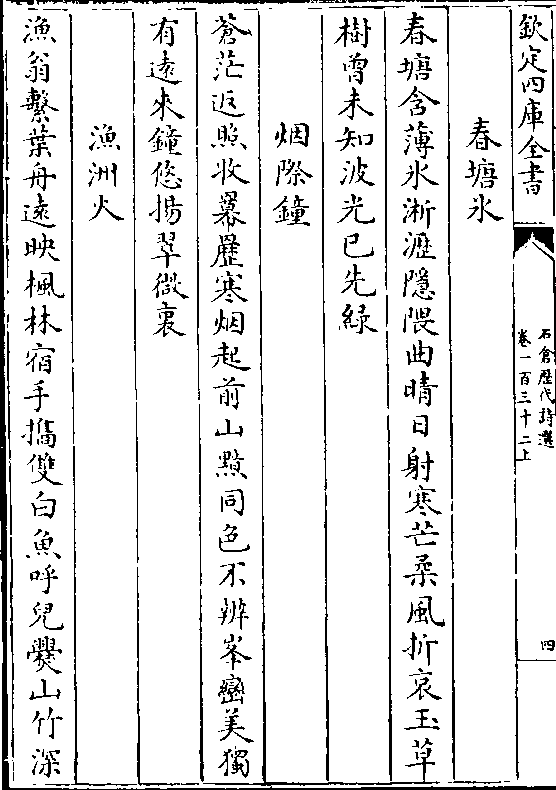 欽定四庫全書
石倉歴代詩選
卷一百三十二上
四
春塘氷
春塘含薄氷淅瀝隱隈曲晴日射寒芒柔風折哀玉草
樹曾未知波光已先緑
烟際鐘
蒼茫返照收羃𠪱寒烟起前山黯同色不辨峯巒美獨
有遠來鐘悠揚翠微裏
漁洲火
漁翁繫葉舟遠映楓林宿手擕雙白魚呼兒爨山竹深